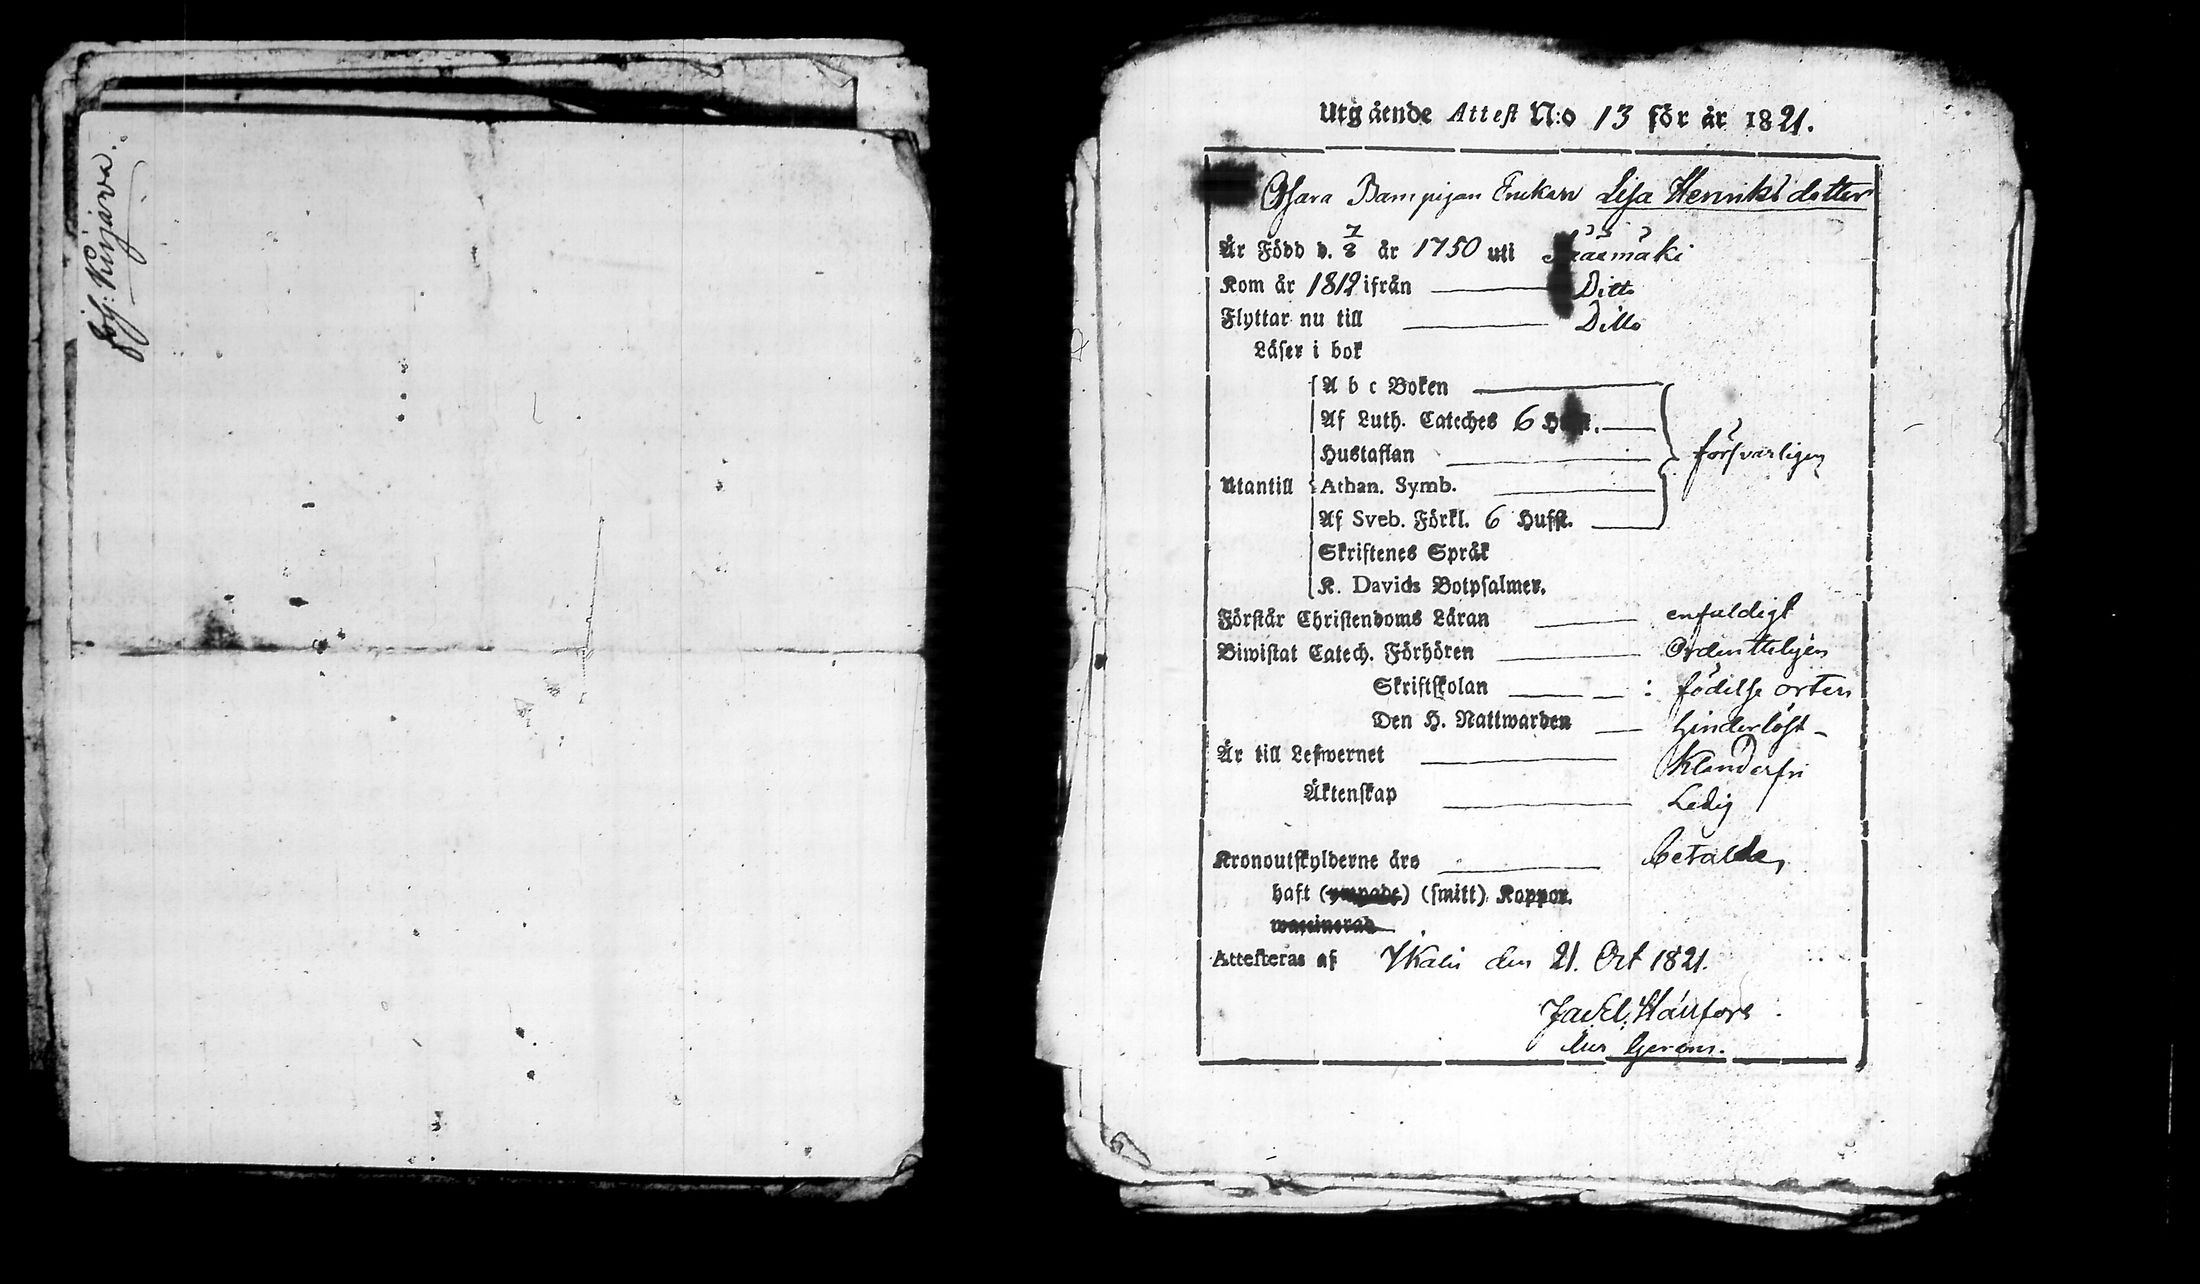 Kirjava.
Utgående Attest N:o 13 för år 1821.
Enckan Lisa Henriksdotter
Är Född d. 7/8 år 1750 uti
Kom år 1812 ifrån Ditto
Flyttar nu till Ditto
Läser i bok
A b c Boken
Af Luth. Cateches 6
Hustaflan
försvarligen
Utantill Athan. Symb.
Af Sveb. Förkl. 6 Hufst.
Skriftenes Språk
K. Davids Botpsalmer.
Förstår Christendoms Läran enfaldigt
Biwistat Catech. Förhören Ordentteligen
Skriftskolan : födelse orten
Den H. Nattwarden hinderlöst
Är till Lefwernet Klanderfri
Äktenskap Ledig
Kronoutskylderne äro betalde,
haft (ympade) (smitt) Koppor.
waccinerad
Attesteras af Ikalis den 21. Oct 1821.